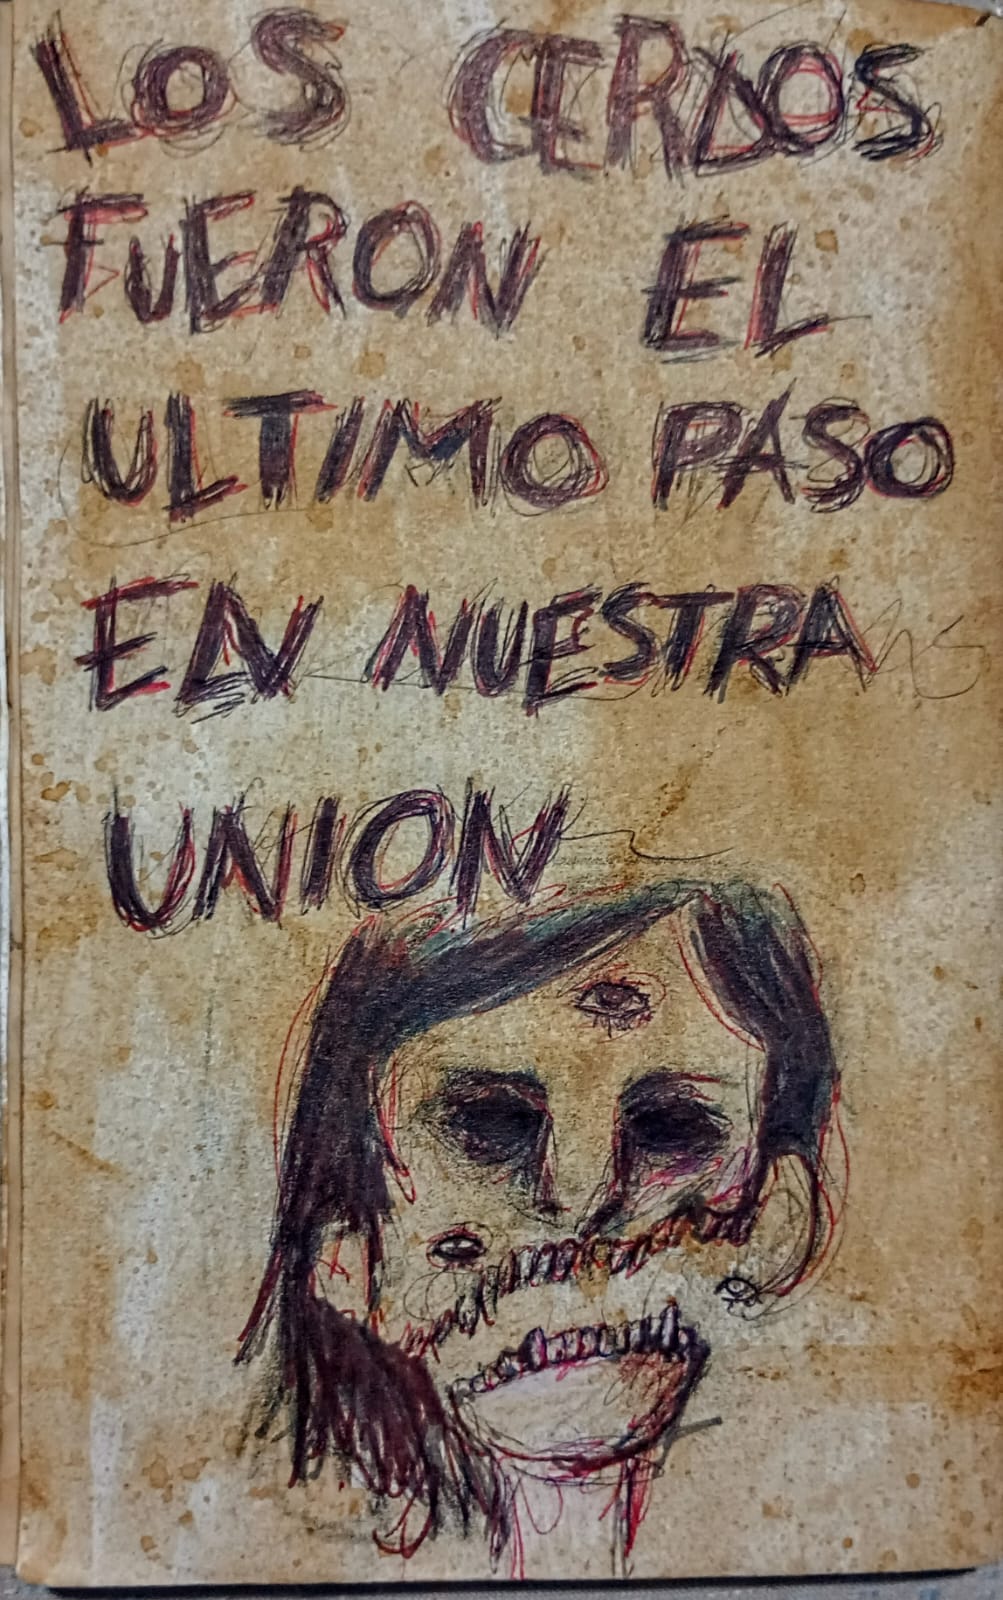 LOS CERDOS
FUERON EL
ULTIMO PASO
EN NUESTRA
UNION